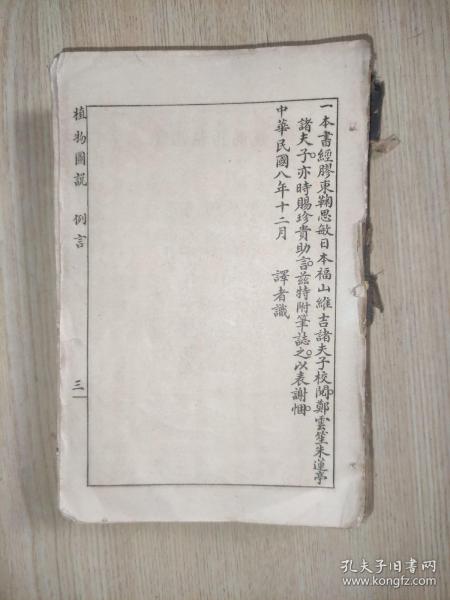 一本書經膠東鞠思敏日本福山維吉諸夫子校閱鄭雲笙朱蓮亭
諸夫子亦時賜珍貴助言茲特附筆誌之以表謝悃
中華民國八年十二月　譯者識
植物圖說　例言　三
孔夫子旧书网
www.kongfz.com